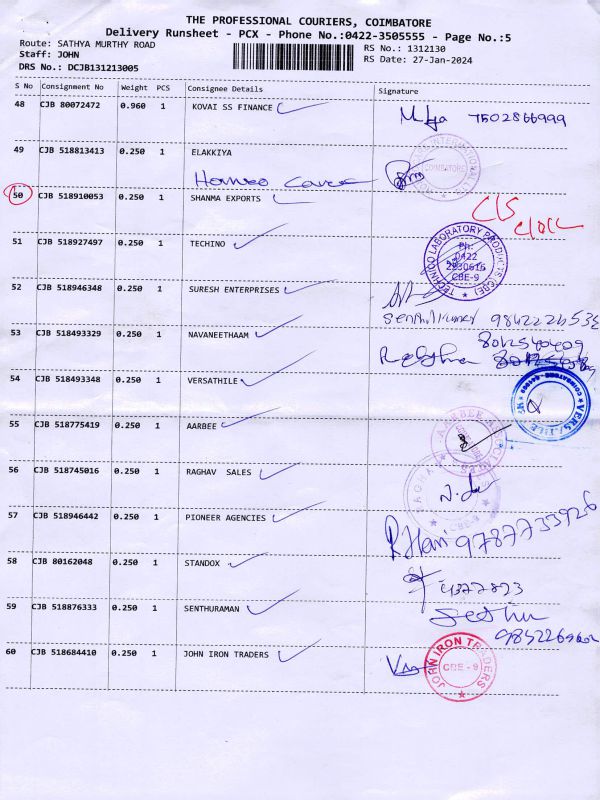 THE PROFESSIONAL COURIERS, COIMBATORE
Delivery Runsheet - PCX - Phone No.:0422-3505555 - Page No.:5
Route: SATHYA MURTHY ROAD
RS No.: 1312130
Staff: JOHN
RS Date: 27-Jan-2024
DRS No.: DCJB131213005
S No Consignment No Weight PCS Consignee Details Signature
48 CJB 80072472 0.960 1 KOVAI SS FINANCE
7502866999
49 CJB 518813413 0.250 1 ELAKKIYA
COIMBATORE
50 CJB 518910053 0.250 1 SHANMA EXPORTS
C/S
51 CJB 518927497 0.250 1 TECHINO
TECHNICO LABORATORY PRODUCTS (CBE)
Ph:
0422
2830616
CBE-9
52 CJB 518946348 0.250 1 SURESH ENTERPRISES
53 CJB 518493329 0.250 1 NAVANEETHAAM
8012540409
54 CJB 518493348 0.250 1 VERSATHILE
55 CJB 518775419 0.250 1 AARBEE
AARBEE
56 CJB 518745016 0.250 1 RAGHAV SALES
RAGHAV
CBE-9
57 CJB 518946442 0.250 1 PIONEER AGENCIES
R.Hari 9787733926
58 CJB 80162048 0.250 1 STANDOX
59 CJB 518876333 0.250 1 SENTHURAMAN
60 CJB 518684410 0.250 1 JOHN IRON TRADERS
JOHN IRON TRADERS
CBE - 9